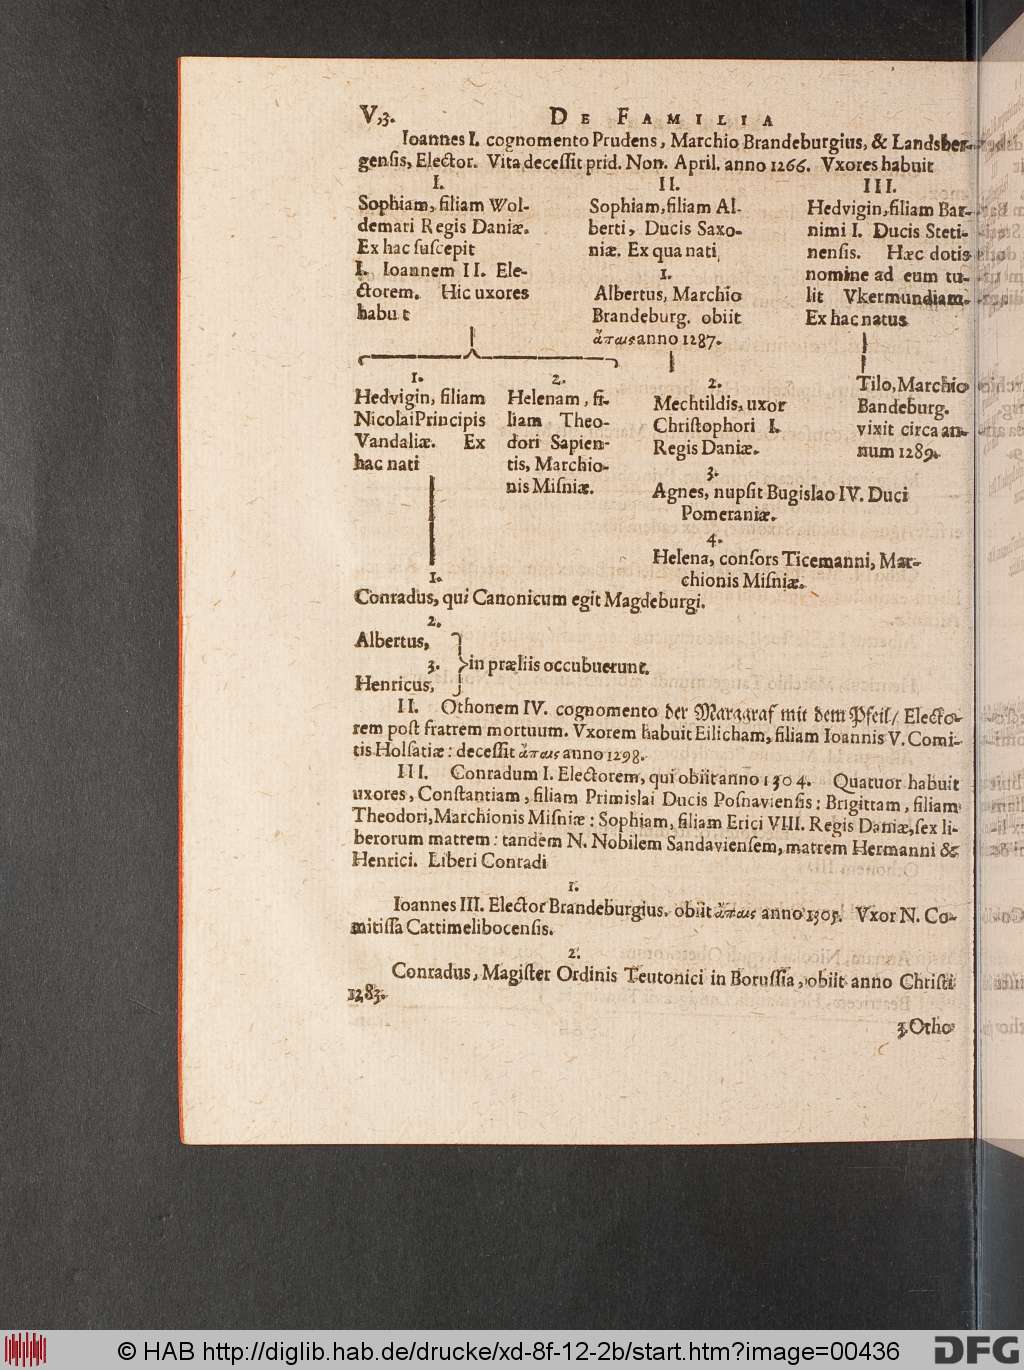 V,3. DE FAMILIA
Ioannes I. cognomento Prudens, Marchio Brandeburgius, & Landsber-
gensis, Elector. Vita decessit prid. Non. April. anno 1266. Vxores habuit
I.
Sophiam, filiam Wol-
demari Regis Daniæ.
Ex hac suscepit
I. Ioannem II. Ele-
ctorem. Hic uxores
habu t
II.
Sophiam, filiam Al-
berti, Ducis Saxo-
niæ. Ex qua nati
1.
Albertus, Marchio
Brandeburg. obiit
ἄπαις anno 1287.
III.
Hedvigin, filiam Bar-
nimi I. Ducis Steti-
nensis. Hæc dotis
nomine ad eum tu-
lit Vkermundiam.
Ex hac natus
1.
Hedvigin, filiam
Nicolai Principis
Vandaliæ. Ex
hac nati
2.
Helenam, fi-
liam Theo-
dori Sapien-
tis, Marchio-
nis Misniæ.
2.
Mechtildis, uxor
Christophori I.
Regis Daniæ.
3.
Agnes, nupsit Bugislao IV. Duci
Pomeraniæ.
4.
Helena, consors Ticemanni, Mar-
chionis Misniæ.
Tilo, Marchio
Bandeburg.
vixit circa an-
num 1289.
1.
Conradus, qui Canonicum egit Magdeburgi.
2.
Albertus,
3. in præliis occubuerunt.
Henricus,
II. Othonem IV. cognomento der Maragraf mit dem Pfeil/ Electo-
rem post fratrem mortuum. Vxorem habuit Eilicham, filiam Ioannis V. Comi-
tis Holsatiæ: decessit ἄπαις anno 1298.
III. Conradum I. Electorem, qui obiit anno 1304. Quatuor habuit
uxores, Constantiam, filiam Primislai Ducis Posnaviensis: Brigittam, filiam
Theodori, Marchionis Misniæ: Sophiam, filiam Erici VIII. Regis Daniæ, sex li-
berorum matrem: tandem N. Nobilem Sandaviensem, matrem Hermanni &
Henrici. Liberi Conradi
1.
Ioannes III. Elector Brandeburgius. obiit ἄπαις anno 1305. Vxor N. Co-
mitissa Cattimelibocensis.
2.
Conradus, Magister Ordinis Teutonici in Borussia, obiit anno Christi
1283.
3. Otho
© HAB http://diglib.hab.de/drucke/xd-8f-12-2b/start.htm?image=00436
DFG